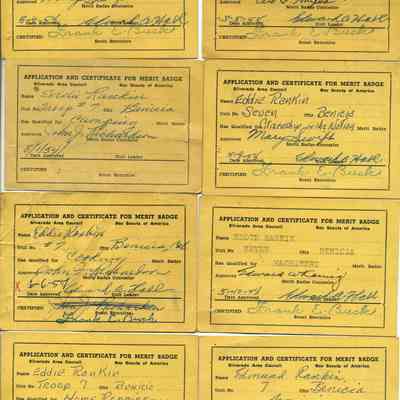 Merit Badge Counselor
Scout Executive
CERTIFIED
Frank E. Buck
Edward A. Hall
Merit Badge Counselor
CERTIFIED
Frank E. Buck
Scout Executive
APPLICATION AND CERTIFICATE FOR MERIT BADGE
Silverado Area Council Boy Scouts of America
Name Eddie Rankin
Unit No. Troop # 7 Benicia
Has Qualified for Camping Merit Badge
Approved
Date Approved Unit Leader
CERTIFIED
Scout Executive
APPLICATION AND CERTIFICATE FOR MERIT BADGE
Silverado Area Council Boy Scouts of America
Name Eddie Rankin
Unit No. Seven Benicia
Has Qualified for Citizenship in the Nation Merit Badge
Approved Mary Swift
Merit Badge Counselor
Edward A. Hall
Date Approved Unit Leader
CERTIFIED Frank E. Buck
Scout Executive
APPLICATION AND CERTIFICATE FOR MERIT BADGE
Silverado Area Council Boy Scouts of America
Name Eddie Rankin
Unit No. #7 Benicia
Has Qualified for Cooking Merit Badge
Approved
Edward A. Hall
Date Approved
CERTIFIED
Frank E. Buck
APPLICATION AND CERTIFICATE FOR MERIT BADGE
Silverado Area Council Boy Scouts of America
Name EDDIE RANKIN
Unit No. SEVEN BENICIA
Has Qualified for MACHINERY Merit Badge
Approved
Merit Badge Counselor
Edward A. Hall
Date Approved Unit Leader
CERTIFIED Frank E. Buck
Scout Executive
APPLICATION AND CERTIFICATE FOR MERIT BADGE
Silverado Area Council Boy Scouts of America
Name Eddie Rankin
Unit No. Troop 7 Benicia
Has Qualified for Home Repairs
APPLICATION AND CERTIFICATE FOR MERIT BADGE
Silverado Area Council Boy Scouts of America
Name Edmund Rankin
Unit No. 7 Benicia